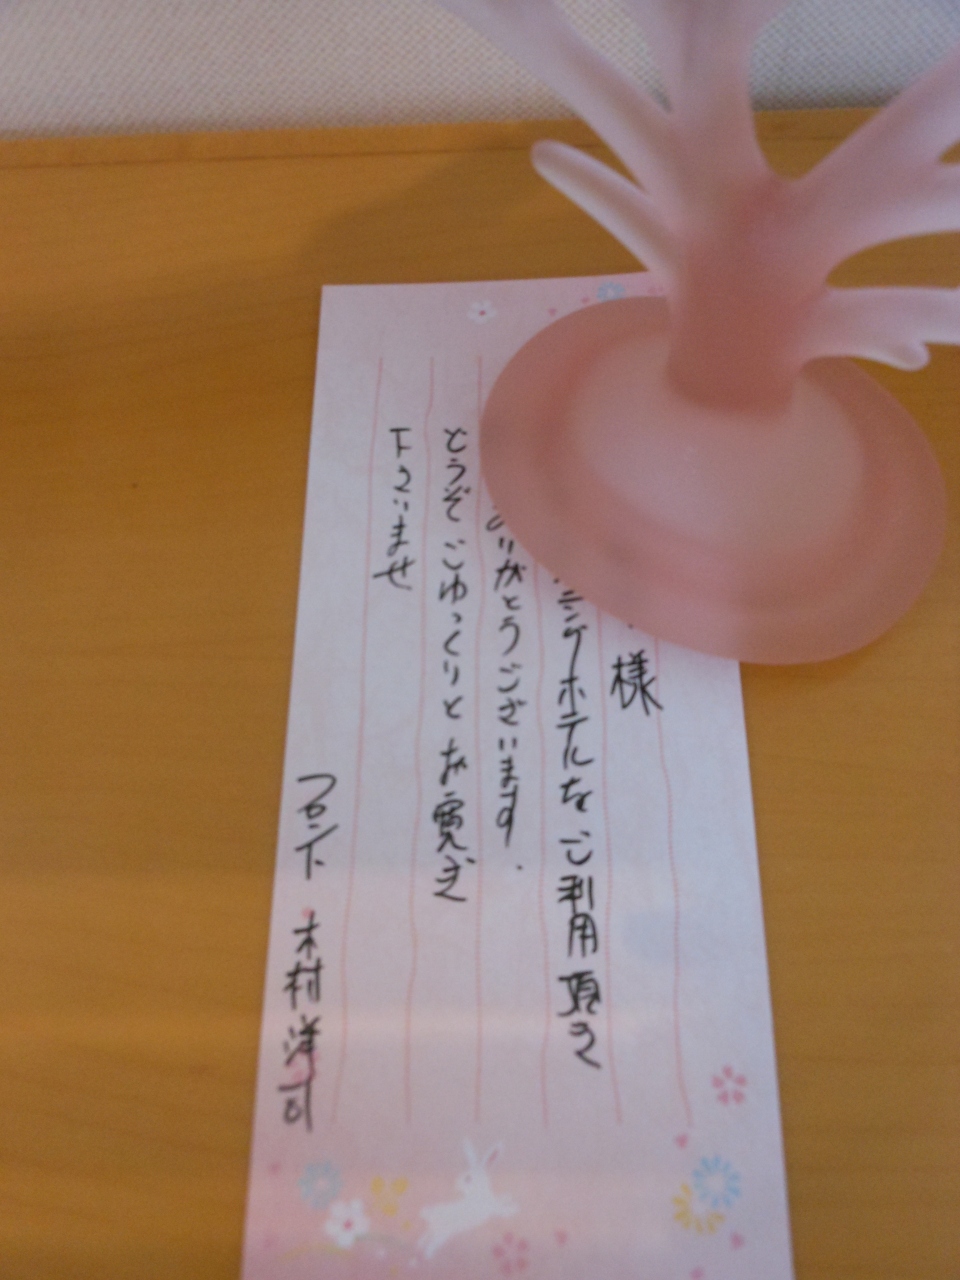 様
ニングホテルをご利用頂き
ありがとうございます.
どうぞごゆっくりとお寛ぎ
下さいませ
フロント 木村洋司